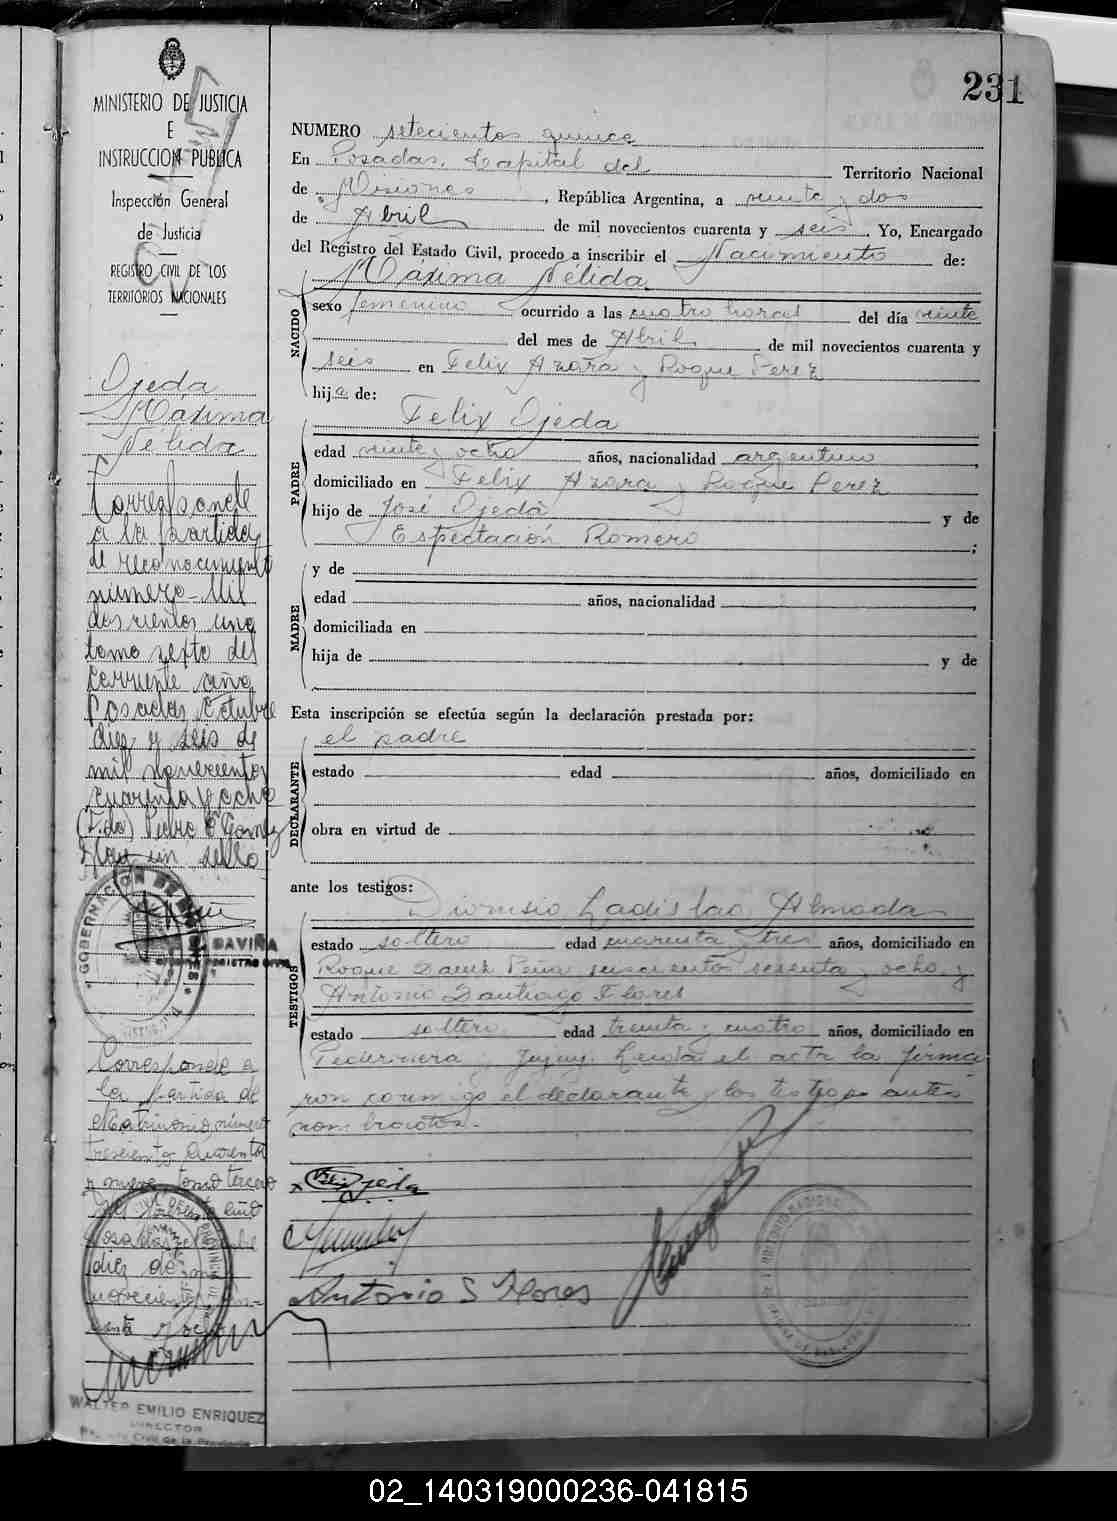 231
MINISTERIO DE JUSTICIA
E
INSTRUCCION PUBLICA
Inspección General
de Justicia
REGISTRO CIVIL DE LOS
TERRITORIOS NACIONALES
Ojeda
Máxima
Nelida
Corresponde
a la partida
de reconocimiento
número Mil
doscientos uno
tomo sexto del
corriente año
Posadas Octubre
diez y seis de
mil novecientos
cuarenta y ocho
(Fdo) Pedro Gomez
Hay un sello
GOBERNACION DE MISIONES
DAVIÑA
Corresponde a
la partida de
Matrimonio número
trescientos cuarenta
y nueve, tomo tercero
del año
Posadas
diez de mil
novecientos
y ocho
WALTER EMILIO ENRIQUEZ
DIRECTOR
Registro Civil de la Provincia
NUMERO setecientos quince
En Posadas, Capital del Territorio Nacional
de Misiones, República Argentina, a veinte y dos
de Abril de mil novecientos cuarenta y seis. Yo, Encargado
del Registro del Estado Civil, procedo a inscribir el Nacimiento de:
Máxima Nélida
NACIDO
sexo femenino ocurrido a las cuatro horas del día veinte
del mes de Abril de mil novecientos cuarenta y
seis en Felix Azara y Roque Perez
hija de:
Felix Ojeda
PADRE
edad veinte y ocho años, nacionalidad argentino
domiciliado en Felix Azara y Roque Perez
hijo de José Ojeda y de
Espectación Romero;
MADRE
y de
edad años, nacionalidad
domiciliada en
hija de y de
Esta inscripción se efectúa según la declaración prestada por:
el padre
DECLARANTE
estado edad años, domiciliado en
obra en virtud de
ante los testigos:
Dionisio Ladislao Almada
TESTIGOS
estado soltero edad cuarenta y tres años, domiciliado en
Roque Saenz Peña seiscientos sesenta y ocho y
Antonio Santiago Flores
estado soltero edad treinta y cuatro años, domiciliado en
y Jujuy. Leida el acta la firma
ron conmigo el declarante y los testigos antes
nombrados.-
x Felix Ojeda
Antonio S Flores
02_140319000236-041815